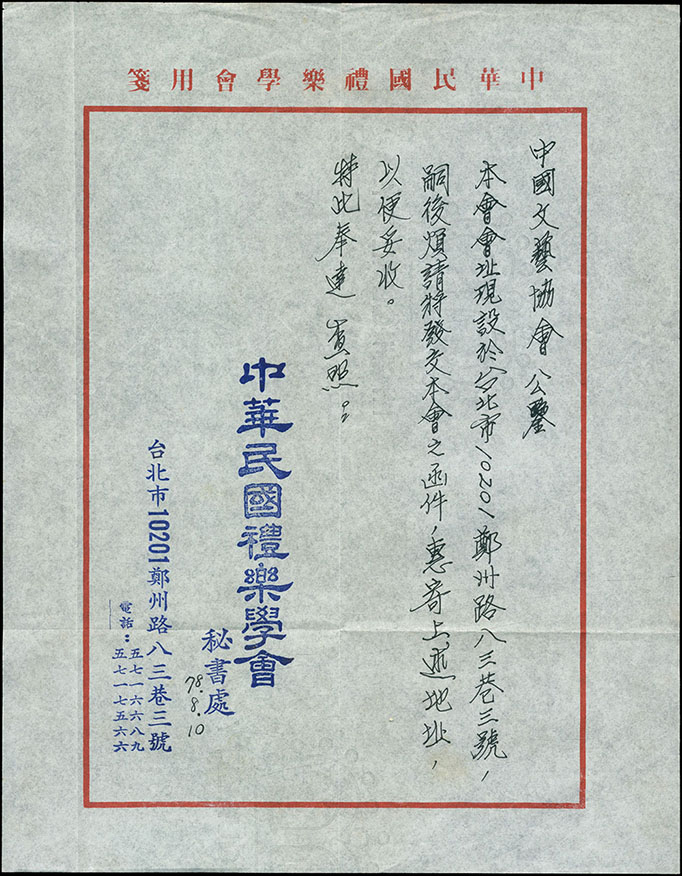 中華民國禮樂學會用箋
中國文藝協會 公鑒
本會會址現設於台北市10201鄭州路八三巷三號，
嗣後煩請將發交本會之函件，惠寄上述地址，
以便妥收。
特此奉達 查照。
中華民國禮樂學會
秘書處
78.8.10
台北市10201鄭州路八三巷三號
電話：五七一六六八九
五七一七五六六